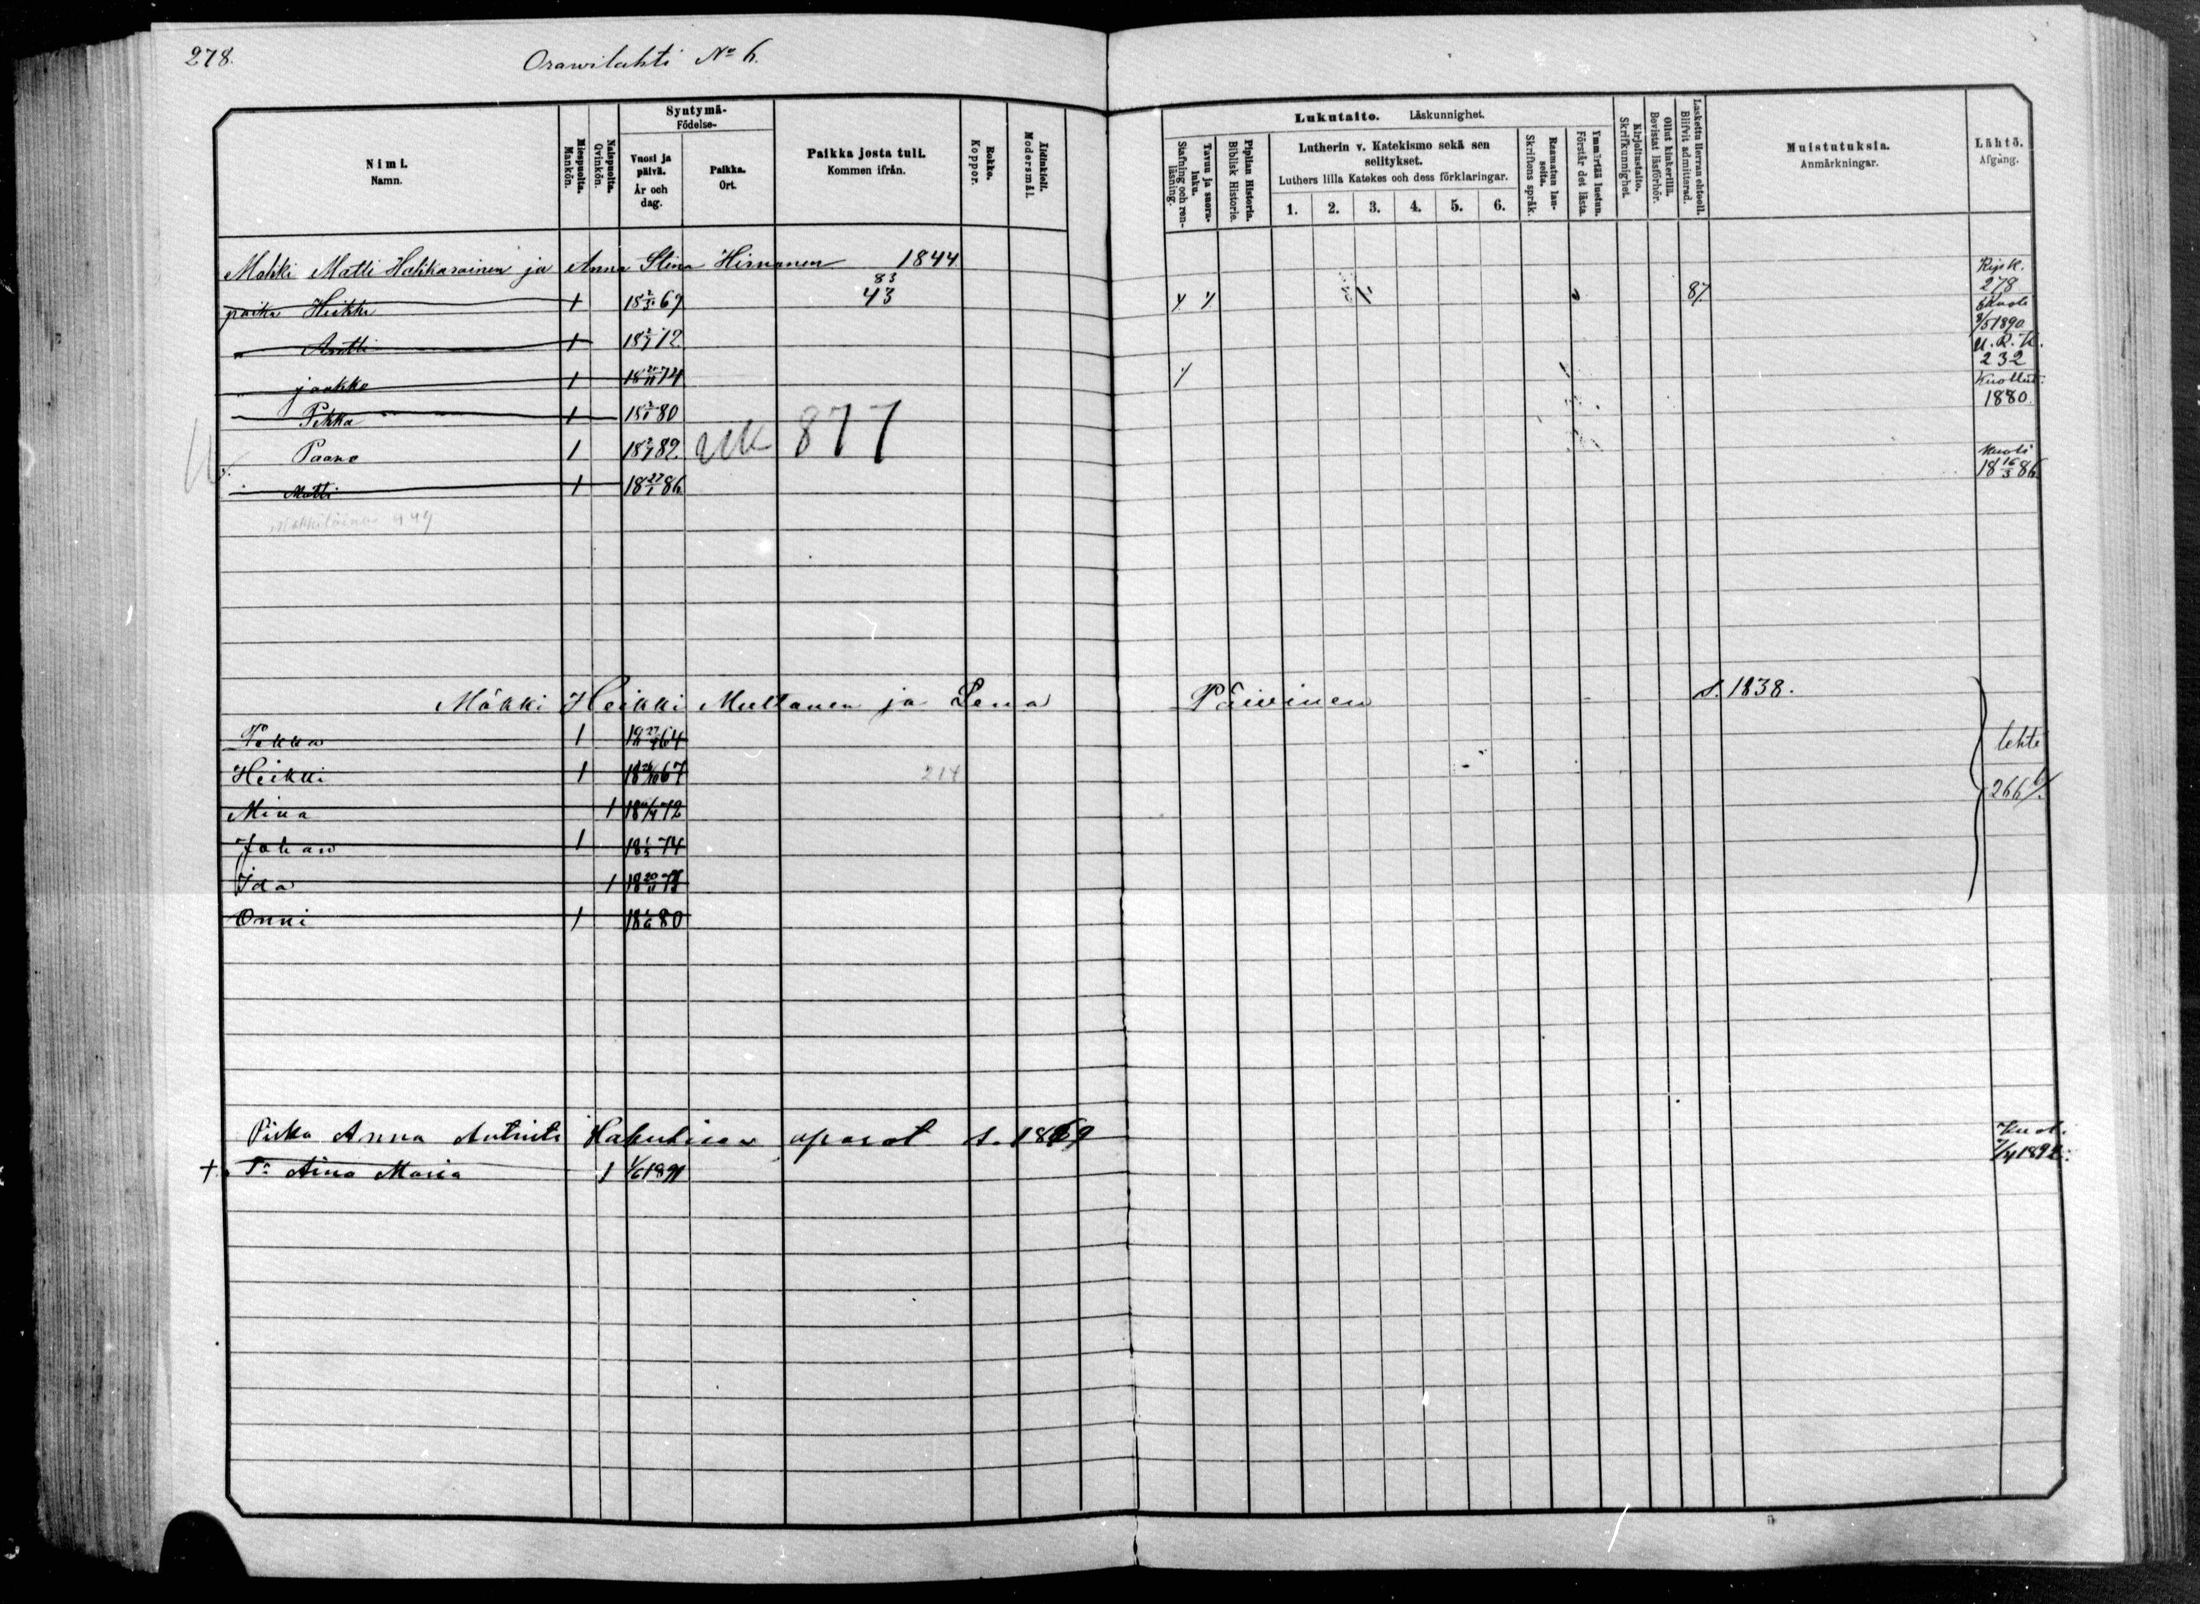 278.
Orawilahti № 6.
Nimi.
Namn.
Miespuolta.
Mankön.
Naispuolta.
Qvinkön.
Syntymä-
Födelse-
Vuosi ja
päivä.
År och
dag.
Paikka.
Ort.
Paikka josta tuli.
Kommen ifrån.
Rokko.
Koppor.
Äidinkieli.
Modersmål.
Lukutaito. Läskunnighet.
Tavuu ja suora-
luku.
Stafning och ren-
läsning.
Piplian Historia.
Biblisk Historie.
Lutherin v. Katekismo sekä sen
selitykset.
Luthers lilla Katekes och dess förklaringar.
1. 2. 3. 4. 5. 6.
Raamatun lau-
seita.
Skriftens språk.
Ymmärtää luetun.
Förstår det lästa.
Kirjoitustaito.
Skrifkunnighet.
Ollut kinkerillä.
Bevistat läsförhör.
Laskettu Herran ehtooll.
Blifvit admitterad.
Muistutuksia.
Anmärkningar.
Lähtö.
Afgång.
Mökki Matti Hakkarainen ja Anna Stina Hirvonen 1844
83
43
poika Heikki 1 18 2/3 69 87
Ripk.
278
Kuoli
8/5 1890
" Antti 1 18 2/7 72
U.R.K.
232
" jaakko 1 74
Kuollut
1880.
" Pekka 1 80
Paavo 1 82. UK 877
" Matti 1 18 27/1 86
Kuoli
18 16/3 86
Mökkiläinen 449
Mökki Heikki Multanen ja Lena Päivinen s. 1838.
Pekka 1 64
Heikki 1 18 26/10 67 214
Mina 1 72
Johan 1 74
Ida 1 18 20/11 77
Onni 1 80
lehti
266 b/.
Piika Anna aparat s. 1869
+ Tr Aina Maria 1 1/6 1891
Kuoli
7/4 1892.